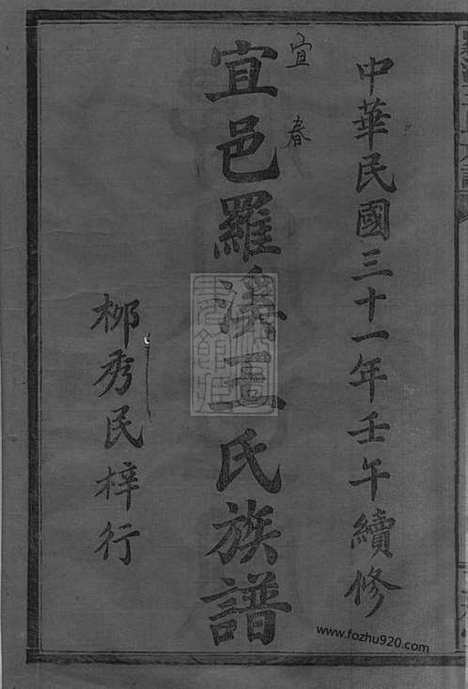 中華民國三十一年壬午續修
宜春
宜邑羅溪王氏族譜
柳秀民梓行
www.fozhu920.com